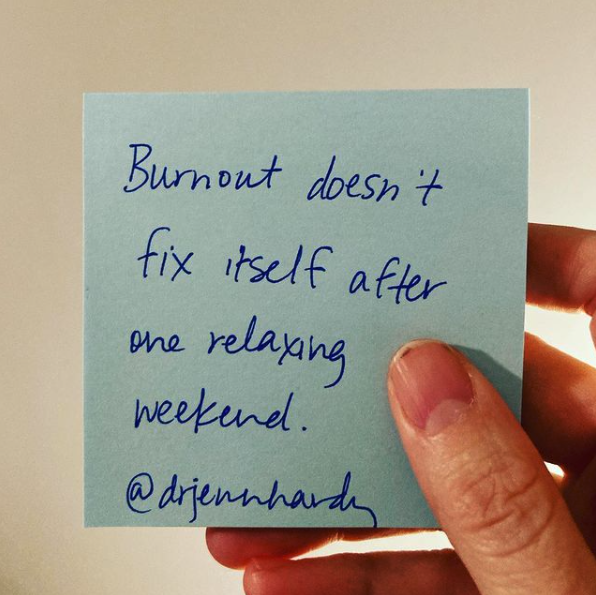 Burnout doesn't
fix itself after
one relaxing
weekend.
@drjennhardy